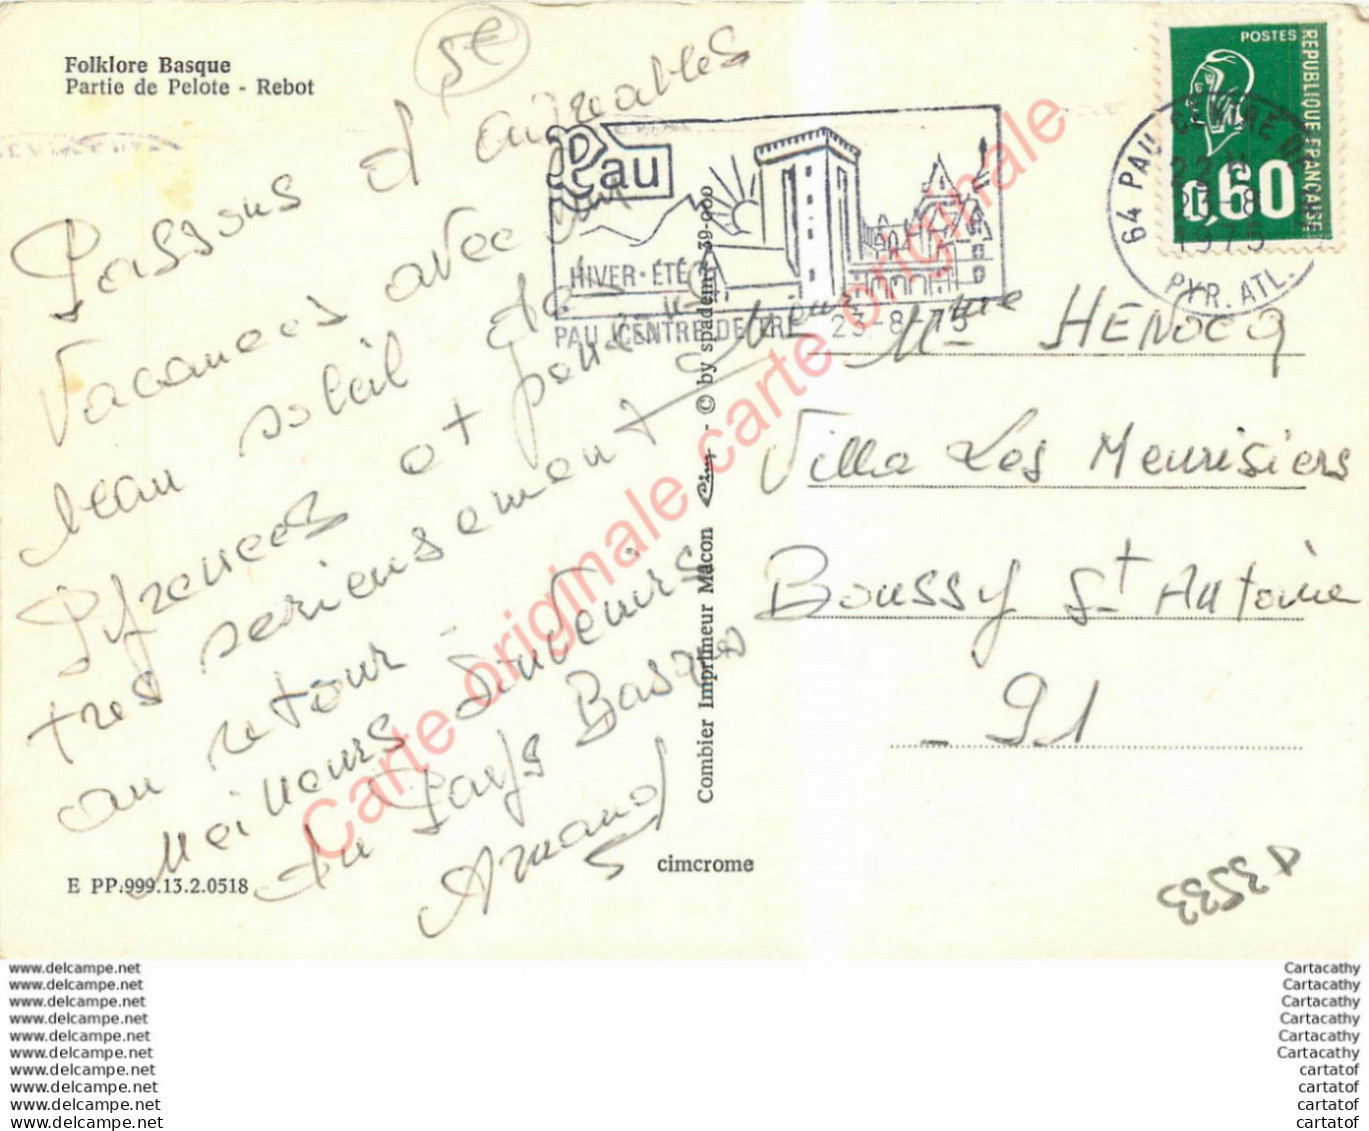 Folklore Basque
Partie de Pelote - Rebot
5€
Passons d'aimables
Vacances avec un
beau soleil de
Pyrenees et pensons
tres serieusement
au retour
Meilleurs Souvenirs
du Pays Basque
Armand
E PP.999.13.2.0518
cimcrome
Combier Imprimeur Mâcon Cim - © by spadem 39-000
Pau
HIVER · ÉTÉ
PAU CENTRE DE TRI 23-8-75
POSTES
REPUBLIQUE FRANÇAISE
0,60
64 PAU CENTRE DE TRI
23-8
1975
PYR. ATL.
Mme HENOCQ
Villa Les Meurisiers
Boussy St Antoine
- 91
13533
Carte originale carte originale
www.delcampe.net
www.delcampe.net
www.delcampe.net
www.delcampe.net
www.delcampe.net
www.delcampe.net
www.delcampe.net
www.delcampe.net
www.delcampe.net
www.delcampe.net
Cartacathy
Cartacathy
Cartacathy
Cartacathy
Cartacathy
Cartacathy
cartatof
cartatof
cartatof
cartatof